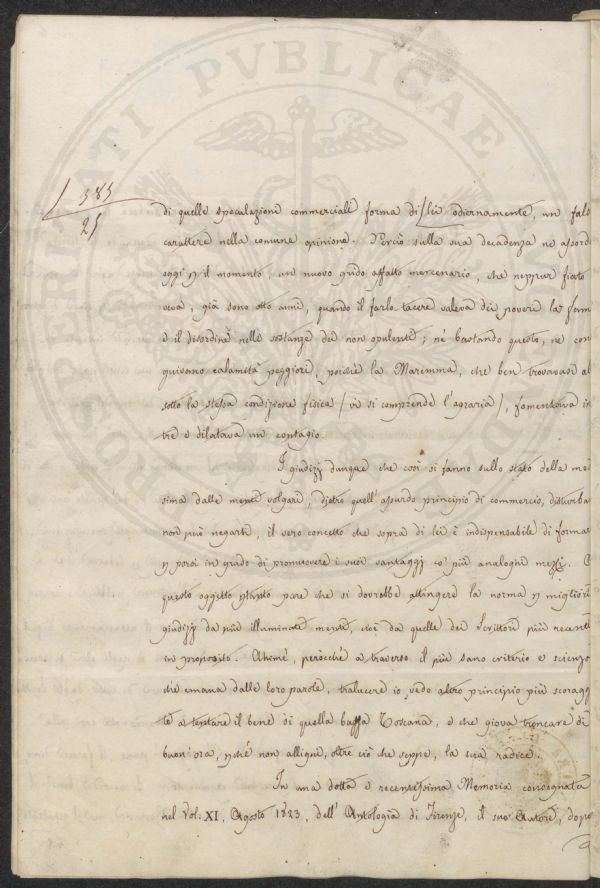 585
25
di quelle speculazione commerciale forma di lei odiernamente, un fals
carattere nella comune opinione. Perciò sulla sua decadenza ne assord
oggi p il momento, un nuovo grido affatto mercenario, che neppur fiato
aveva, già sono otto anni, quando il farlo tacere valeva dei poveri la fam
e il disordine nelle sostanze dei non opulenti; nè bastando questo, ne con
guivano calamità peggiori, poichè la Maremma, che ben trovavasi al
sotto la stessa condizione fisica / vi si comprende l'agraria /, fomentava in
tre e dilatava un contagio.
I giudizj dunque che così si fanno sullo stato della me
sima dalle menti volgari, dietro quell'assurdo principio di commercio, disturba
non può negarsi, il vero concetto che sopra di lei è indispensabile di formar
p porci in grado di promuovere i suoi vantaggj co' più analoghi mezzi.
questo oggetto ptanto pare che si dovrebbe attingere la norma p migliori
giudizj da più illuminate menti, cioè da quelle dei Scrittori più recenti
in proposito. Ahimè, perocchè a traverso il più sano criterio e scienza
che emana dalle loro parole, tralucere io vedo altro principio più scoragg
te a tentare il bene di quella bassa Toscana, e che giova troncare di
buon'ora, pchè non alligni, oltre ciò che seppe, la sua radice.
In una dotta e recentissima Memoria consegnata
nel Vol. XI, Agosto 1823, dell'Antologia di Firenze, il suo Autore, dopo
PROSPERITATI PVBLICAE